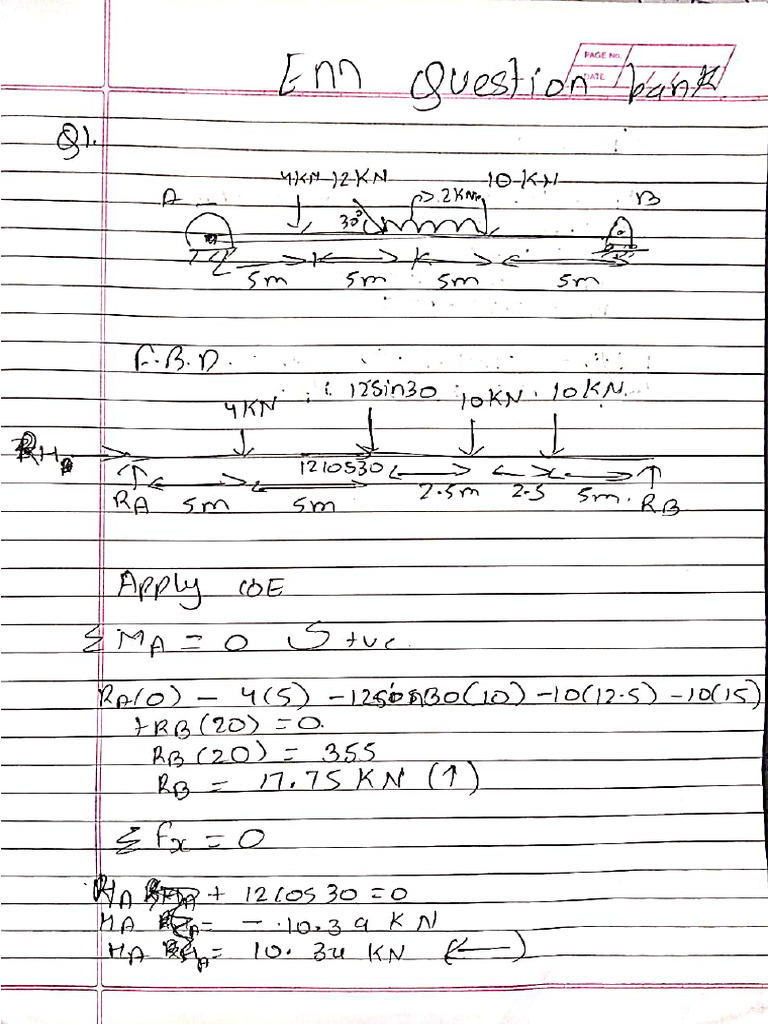 PAGE NO.
DATE
EM Question bank
Q1.
4KN 12 KN 10 KN
A 30° 2 KN B
5m 5m 5m 5m
F.B.D.
12sin30
4KN 10KN 10KN
12cos30
RA 5m 5m 2.5m 2.5 5m. RB
Apply COE
Σ MA = 0 +ve
RA(0) - 4(5) - 12sin30(10) - 10(12.5) - 10(15)
+RB(20) = 0.
RB(20) = 355
RB = 17.75 KN (↑)
Σ fx = 0
HA + 12cos30 = 0
HA = - 10.39 KN
HA = 10.39 KN (←)